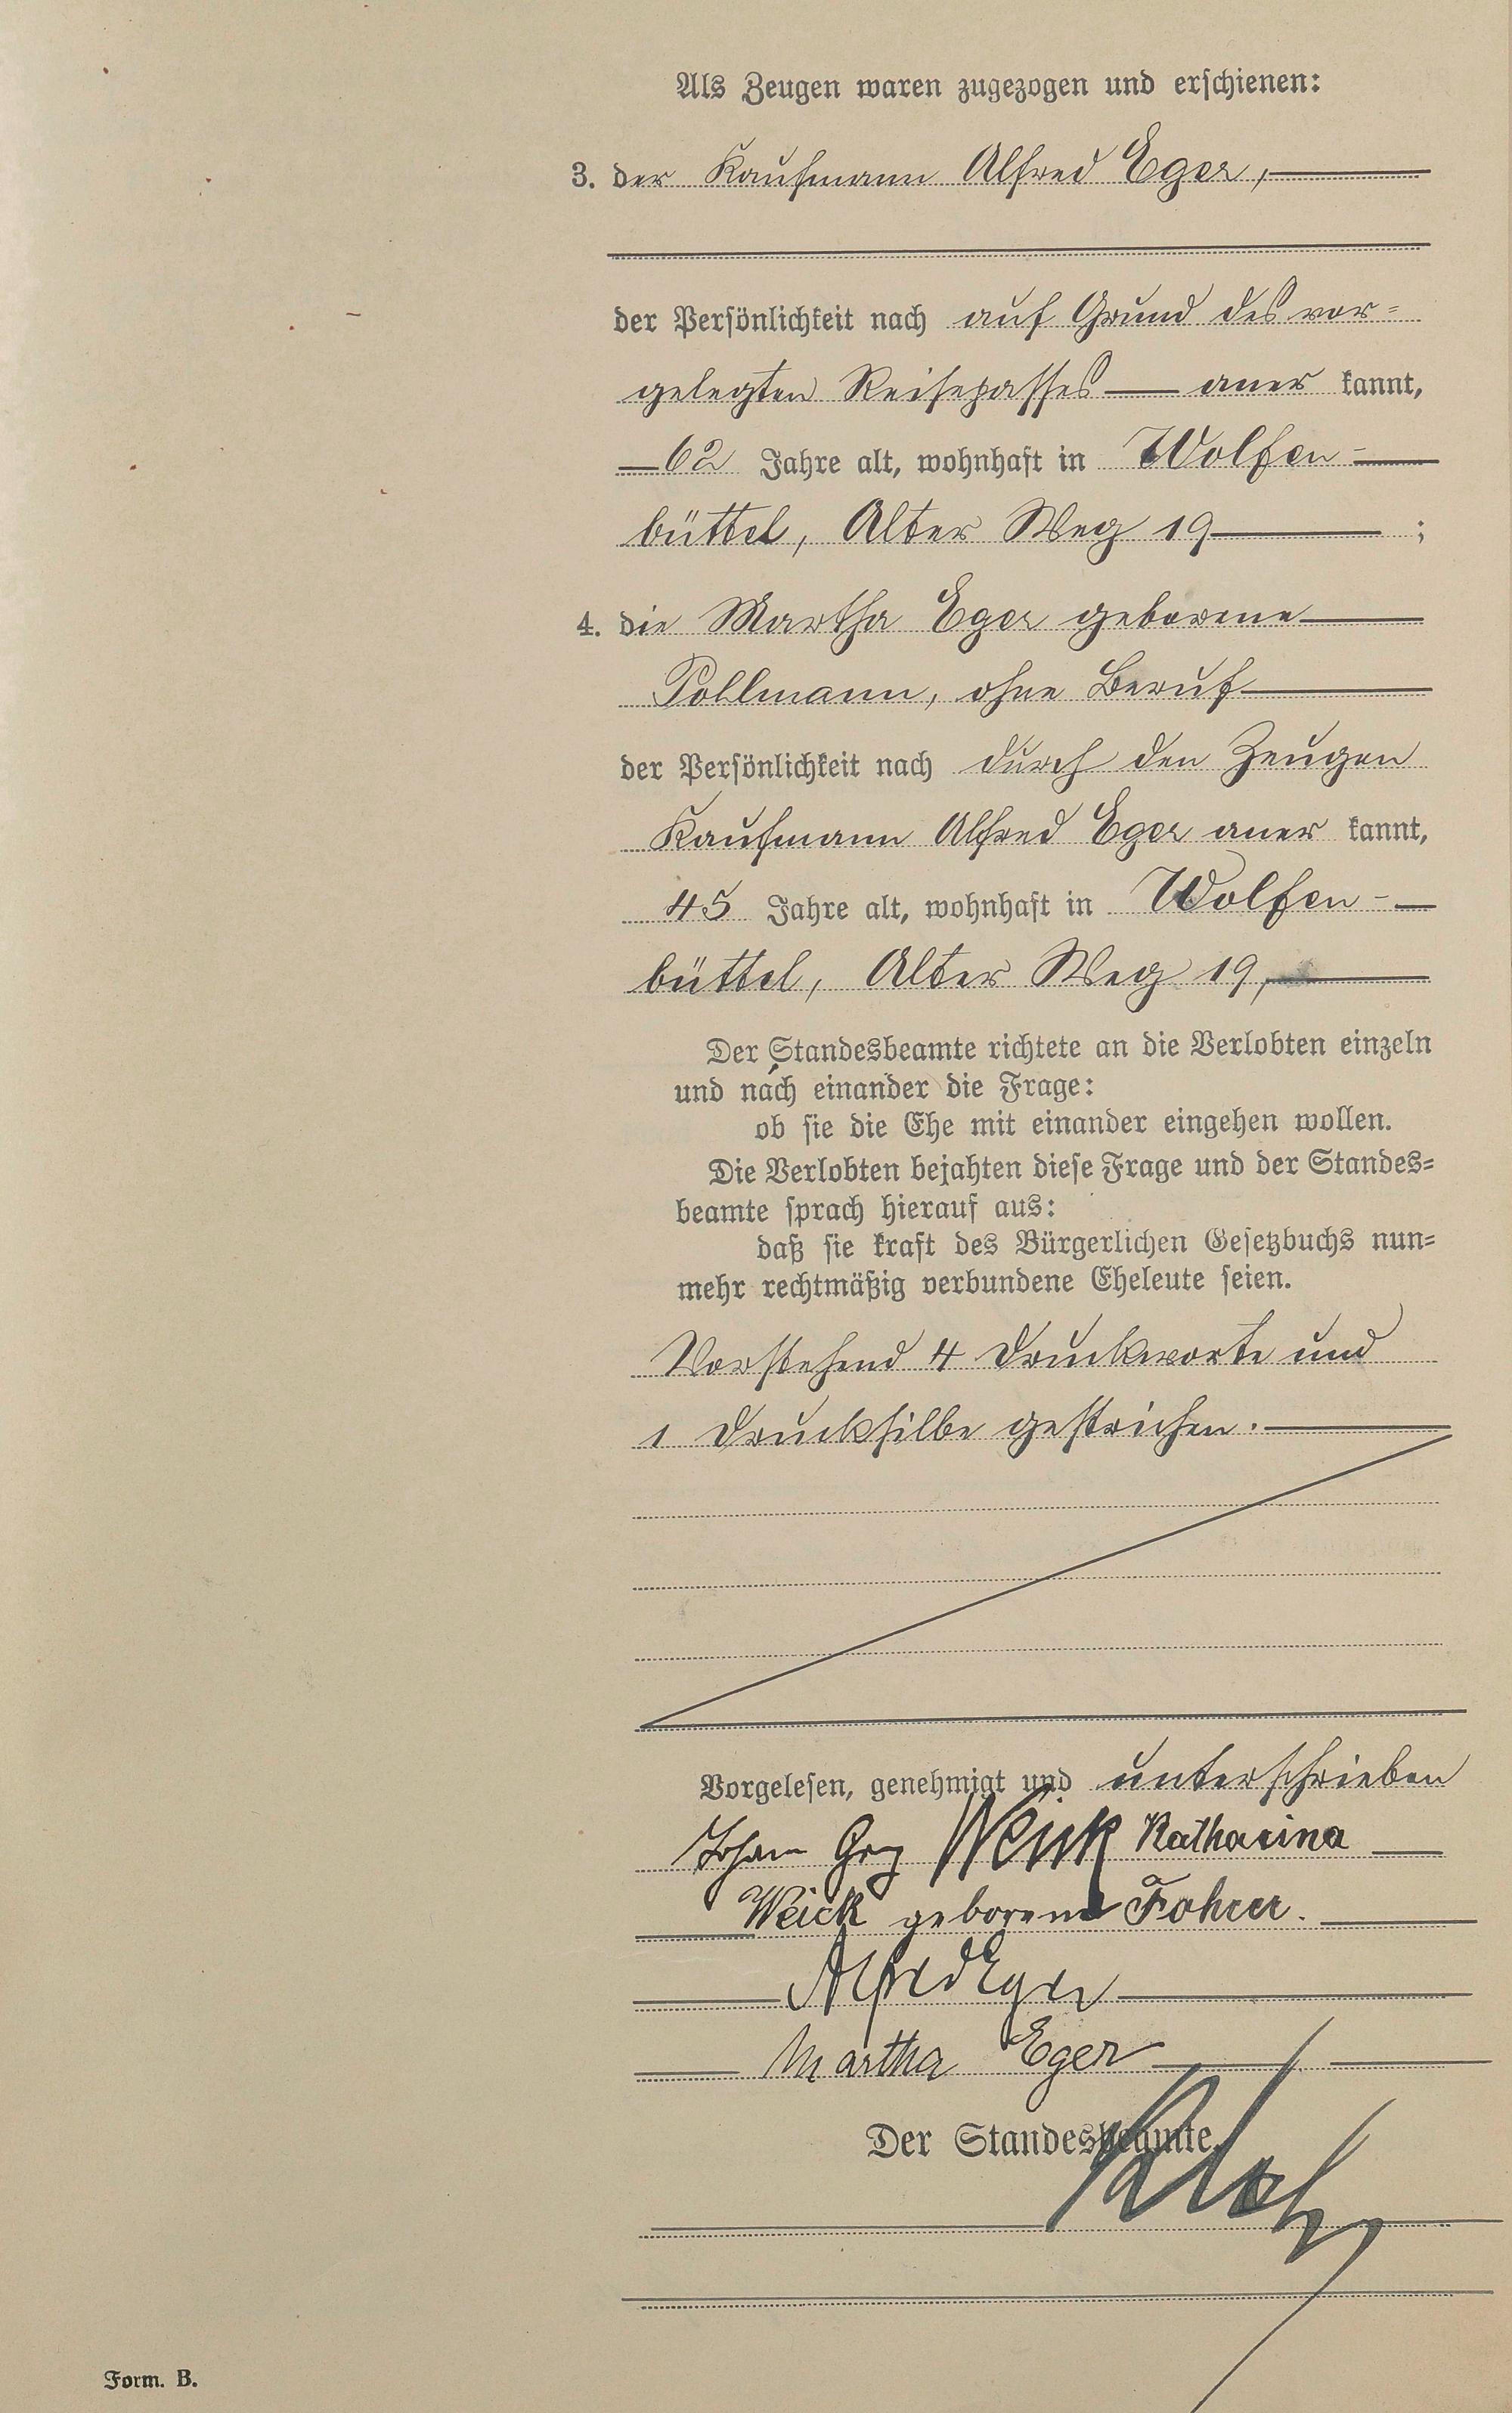 Als Zeugen waren zugezogen und erschienen:
3. der Kaufmann Alfred Eger,
der Persönlichkeit nach auf Grund des vor=
gelegten Reisepasses aner kannt,
62 Jahre alt, wohnhaft in Wolfen-
büttel, Alter Weg 19 ;
4. die Martha Eger geborene
Pollmann, ohne Beruf
der Persönlichkeit nach durch den Zeugen
Kaufmann Alfred Eger aner kannt,
45 Jahre alt, wohnhaft in Wolfen-
büttel, Alter Weg 19,
Der Standesbeamte richtete an die Verlobten einzeln
und nach einander die Frage:
ob sie die Ehe mit einander eingehen wollen.
Die Verlobten bejahten diese Frage und der Standes=
beamte sprach hierauf aus:
daß sie kraft des Bürgerlichen Gesetzbuchs nun=
mehr rechtmäßig verbundene Eheleute seien.
Vorstehend 4 Druckworte und
1 Drucksilbe gestrichen.
Vorgelesen, genehmigt und unterschrieben
Johann Katharina
Weick geborene Fohrer.
Alfred Eger
Martha Eger
Der Standesbeamte.
Form. B.